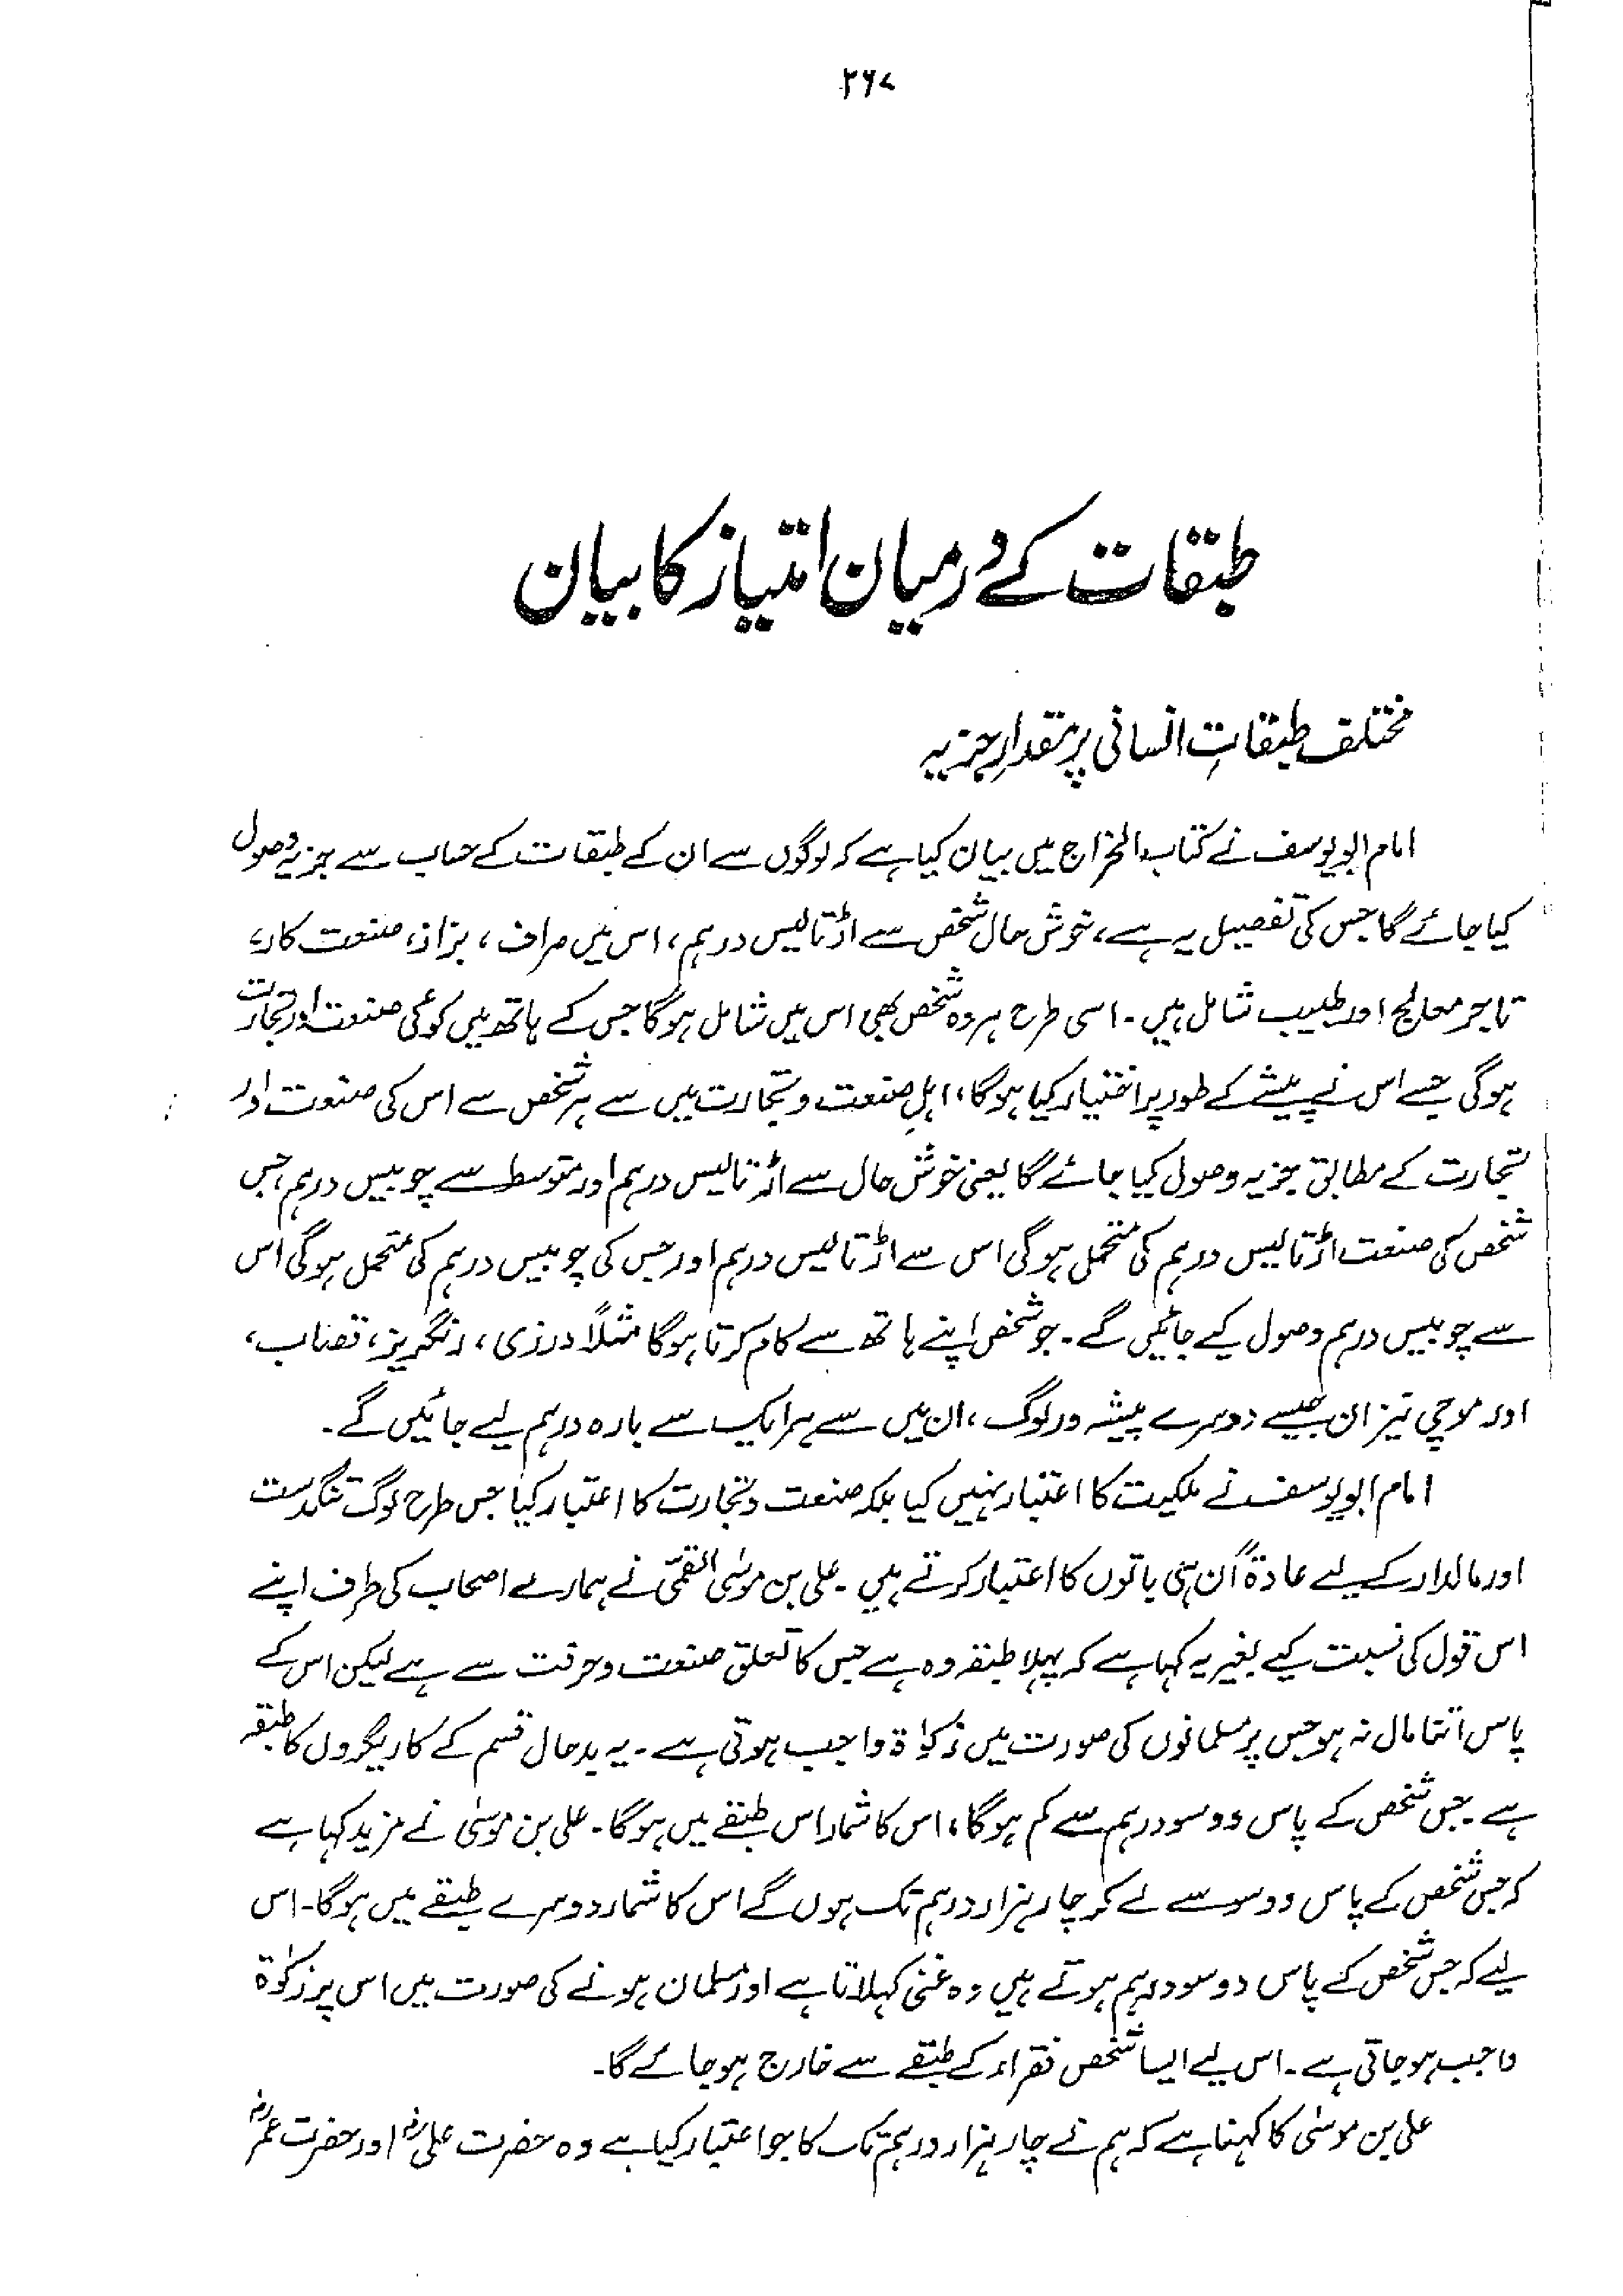 ۲۶۷
طبقات کے درمیان امتیاز کا بیان
مختلف طبقاتِ انسانی پر مقدارِ جزیہ
امام ابویوسف نے کتاب الخراج میں بیان کیا ہے کہ لوگوں سے ان کے طبقات کے حساب سے جزیہ وصول
کیا جائے گا جس کی تفصیل یہ ہے، خوش حال شخص سے اڑتالیس درہم، اس میں صراف، بزاز، صنعت کار،
تاجر معالج اور طبیب شامل ہیں۔ اسی طرح ہر وہ شخص بھی اس میں شامل ہوگا جس کے ہاتھ میں کوئی صنعت اور تجارت
ہوگی جسے اس نے پیشے کے طور پر اختیار کیا ہوگا، اہلِ صنعت و تجارت میں سے ہر شخص سے اس کی صنعت اور
تجارت کے مطابق جزیہ وصول کیا جائے گا یعنی خوش حال سے اڑتالیس درہم اور متوسط سے چوبیس درہم، جس
شخص کی صنعت اڑتالیس درہم کی متحمل ہوگی اس سے اڑتالیس درہم اور جس کی چوبیس درہم کی متحمل ہوگی اس
سے چوبیس درہم وصول کیے جائیں گے۔ جو شخص اپنے ہاتھ سے کام کرتا ہوگا مثلاً درزی، رنگریز، قصاب،
اور موچی نیز ان جیسے دوسرے پیشہ ور لوگ، ان میں سے ہر ایک سے بارہ درہم لیے جائیں گے۔
امام ابویوسف نے ملکیت کا اعتبار نہیں کیا بلکہ صنعت و تجارت کا اعتبار کیا جس طرح لوگ تنگدست
اور مالدار کے لیے عادۃً ان ہی باتوں کا اعتبار کرتے ہیں۔ علی بن موسٰی القمیّ نے ہمارے اصحاب کی طرف اپنے
اس قول کی نسبت کیے بغیر یہ کہا ہے کہ پہلا طبقہ وہ ہے جس کا تعلق صنعت و حرفت سے ہے لیکن اس کے
پاس اتنا مال نہ ہو جس پر مسلمانوں کی صورت میں زکوٰۃ واجب ہوتی ہے۔ یہ بدحال قسم کے کاریگروں کا طبقہ
ہے۔ جس شخص کے پاس دو سو درہم سے کم ہوگا، اس کا شمار اس طبقے میں ہوگا۔ علی بن موسٰی نے مزید کہا ہے
کہ جس شخص کے پاس دو سو سے لے کر چار ہزار درہم تک ہوں گے اس کا شمار دوسرے طبقے میں ہوگا۔ اس
لیے کہ جس شخص کے پاس دو سو درہم ہوتے ہیں وہ غنی کہلاتا ہے اور مسلمان ہونے کی صورت میں اس پر زکوٰۃ
واجب ہو جاتی ہے۔ اس لیے ایسا شخص فقراء کے طبقے سے خارج ہو جائے گا۔
علی بن موسٰی کا کہنا ہے کہ ہم نے چار ہزار درہم تک کا جو اعتبار کیا ہے وہ حضرت علیؓ اور حضرت عمرؓ